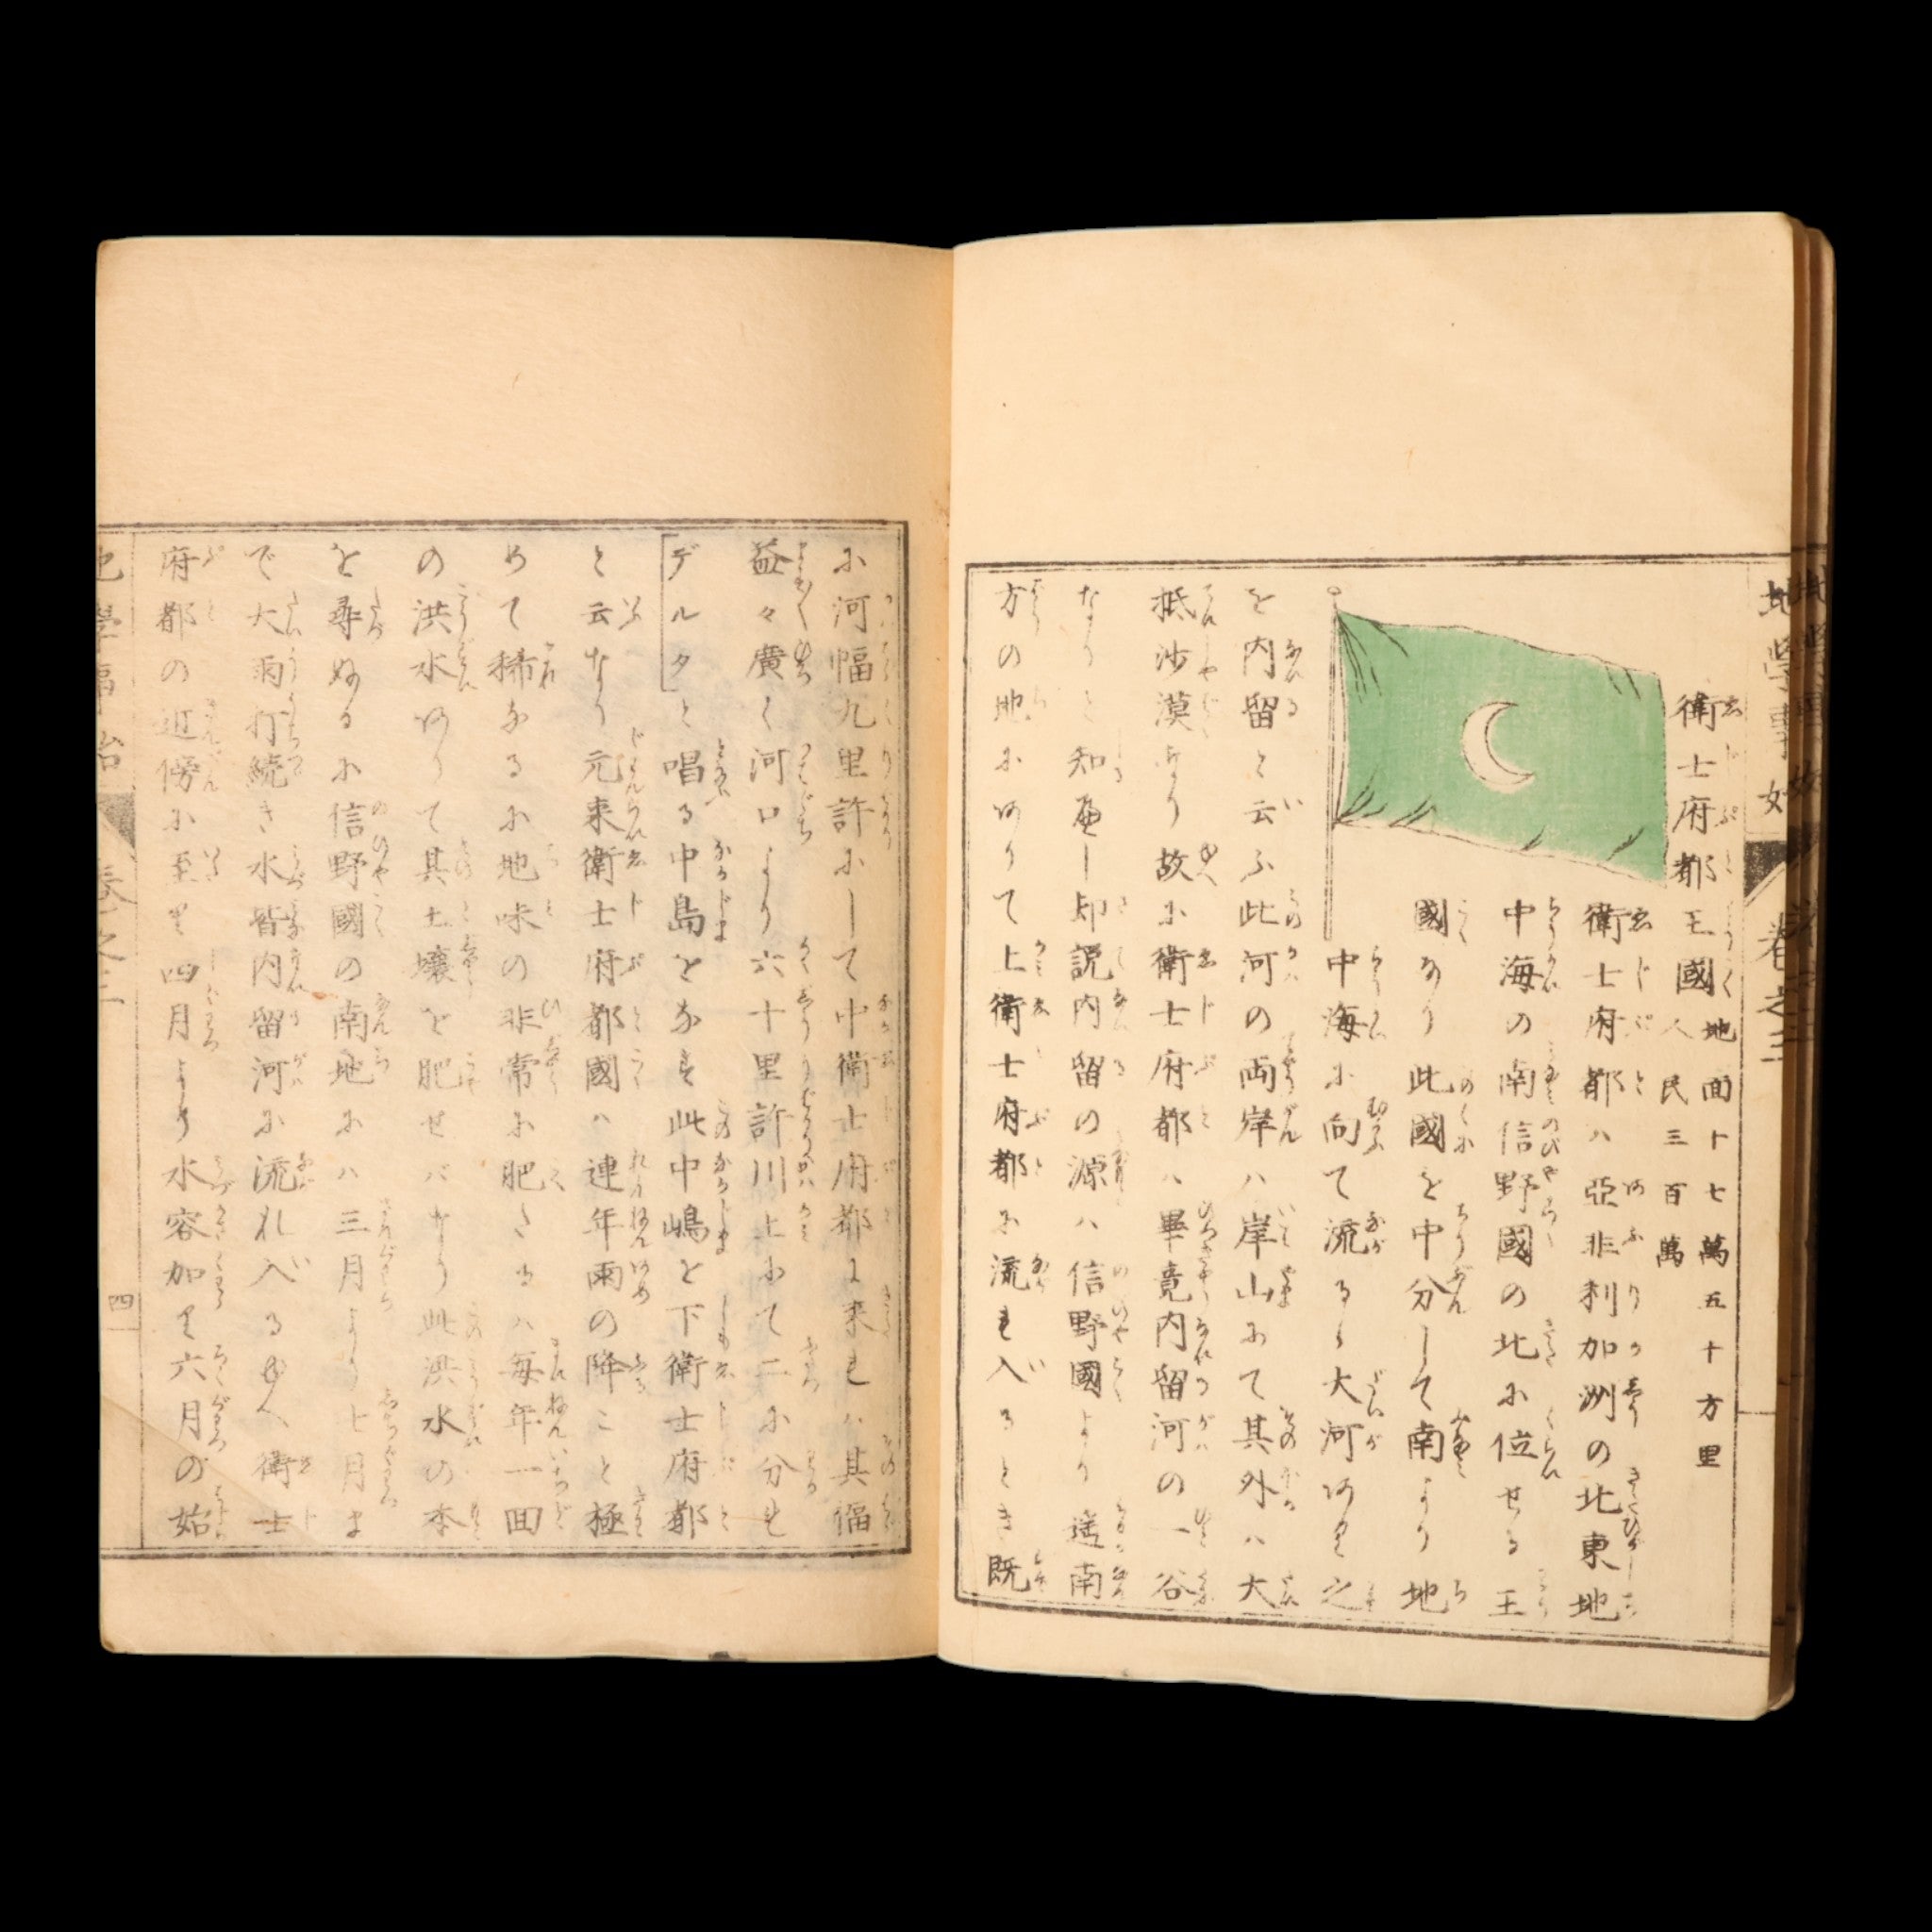 地學事始 巻之三
衛士府都王國 地面十七萬五十方里
人民三百萬
衛士府都ハ亞非利加洲の北東地
中海の南信野國の北に位せる王
國なり此國を中分して南より地
中海に向て流るゝ大河あり之
を内留と云ふ此河の両岸ハ岸山にて其外ハ大
抵沙漠なり故に衛士府都ハ畢竟内留河の一谷
なりと知るべし却説内留の源ハ信野國より遥南
方の地にありて上衛士府都に流れ入るとき既
に河幅九里許にして中衛士府都に来れハ其幅
益々廣く河口より六十里許川上にて二に分れ
デルタと唱る中島をなす此中嶋を下衛士府都
と云なり元来衛士府都國ハ連年雨の降こと極
めて稀なるに地味の非常に肥たるハ毎年一回
の洪水ありて其土壌を肥せバなり此洪水の本
を尋ぬるに信野國の南地にハ三月より七月ま
で大雨打続き水皆内留河に流れ入るゆへ衛士
府都の近傍に至て四月より水容加て六月の始
地學事始 巻之三 四